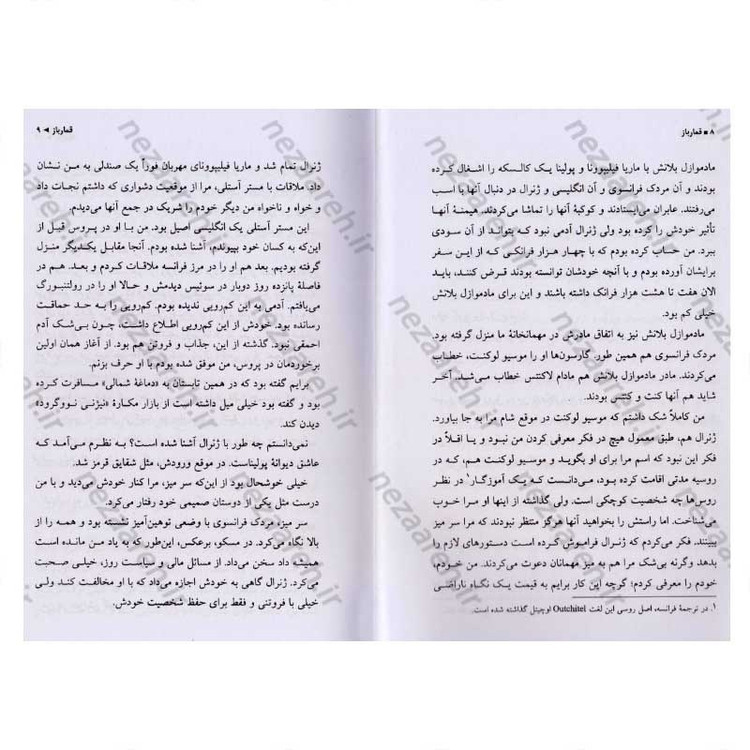 ۸ ■ قمارباز
مادموازل بلانش با ماریا فیلیپوونا و پولینا یک کالسکه را اشغال کرده
بودند و آن مردک فرانسوی و آن انگلیسی و ژنرال در دنبال آنها با اسب
می‌رفتند. عابران می‌ایستادند و کوکبهٔ آنها را تماشا می‌کردند. هیمنهٔ آنها
تأثیر خودش را کرده بود ولی ژنرال آدمی نبود که بتواند از آن سودی
ببرد. من حساب کرده بودم که با چهار هزار فرانکی که از این سفر
برایشان آورده بودم و با آنچه خودشان توانسته بودند قرض کنند، باید
الان هفت تا هشت هزار فرانک داشته باشند و این برای مادموازل بلانش
خیلی کم بود.
مادموازل بلانش نیز به اتفاق مادرش در مهمانخانهٔ ما منزل گرفته بود.
مردک فرانسوی هم همین طور. گارسون‌ها او را موسیو لوکنت، خطاب
می‌کردند. مادر مادموازل بلانش هم مادام لاکنتس خطاب می‌شد. آخر
شاید هم آنها کنت و کنتس بودند.
من کاملاً شک داشتم که موسیو لوکنت در موقع شام مرا به جا بیاورد.
ژنرال هم، طبق معمول هیچ در فکر معرفی کردن من نبود و یا اقلاً در
فکر این نبود که اسم مرا برای او بگوید و موسیو لوکنت هم، که در
روسیه مدتی اقامت کرده بود، می‌دانست که یک آموزگار۱ در نظر
روس‌ها چه شخصیت کوچکی است. ولی گذاشته از اینها او مرا خوب
می‌شناخت. اما راستش را بخواهید آنها هرگز منتظر نبودند که مرا سر میز
ببینند. فکر می‌کردم که ژنرال فراموش کرده است دستورهای لازم را
بدهد وگرنه بی‌شک مرا هم به میز مهمانان دعوت می‌کردند. من خودم،
خودم را معرفی کردم؛ گرچه این کار برایم به قیمت یک نگاه ناراضی
۱. در ترجمهٔ فرانسه، اصل روسی این لغت Outchitel اوچیتل گذاشته شده است.
قمارباز ◄ ۹
ژنرال تمام شد و ماریا فیلیپوونای مهربان فوراً یک صندلی به من نشان
داد. ملاقات با مستر آستلی، مرا از موقعیت دشواری که داشتم نجات داد
و خواه و ناخواه من دیگر خودم را شریک در جمع آنها می‌دیدم.
این مستر آستلی یک انگلیسی اصیل بود. من با او در پروس قبل از
این‌که به کسان خود بپیوندم، آشنا شده بودم. آنجا مقابل یکدیگر منزل
گرفته بودیم. بعد هم او را در مرز فرانسه ملاقات کردم و بعد. هم در
فاصلهٔ پانزده روز دوبار در سوئیس دیدمش و حالا او را در رولتنبورگ
می‌یافتم. آدمی به این کم‌رویی ندیده بودم. کم‌رویی را به حد حماقت
رسانده بود. خودش از این کم‌رویی اطلاع داشت، چون بی‌شک آدم
احمقی نبود. گذشته از این، جذاب و فروتن هم بود. از آغاز همان اولین
برخوردمان در پروس، من موفق شده بودم با او حرف بزنم.
برایم گفته بود که در همین تابستان به «دماغهٔ شمالی» مسافرت کرده
بود و گفته بود خیلی میل داشته است از بازار مکارهٔ «نیژنی نووگرود»
دیدن کند.
نمی‌دانستم چه طور با ژنرال آشنا شده است؟ به نظرم می‌آمد که
عاشق دیوانهٔ پولیناست. در موقع ورودش، مثل شقایق قرمز شد.
خیلی خوشحال بود از این‌که سر میز، مرا کنار خودش می‌دید و با من
درست مثل یکی از دوستان صمیمی خود رفتار می‌کرد.
سر میز، مردک فرانسوی با وضعی توهین‌آمیز نشسته بود و همه را از
بالا نگاه می‌کرد. در مسکو، برعکس، این‌طور که به یاد من مانده است
همیشه داد سخن می‌داد. از مسائل مالی و سیاست روز، خیلی صحبت
می‌کرد. ژنرال گاهی به خودش اجازه می‌داد که با او مخالفت کند ولی
خیلی با فروتنی و فقط برای حفظ شخصیت خودش.
nezaareh.ir